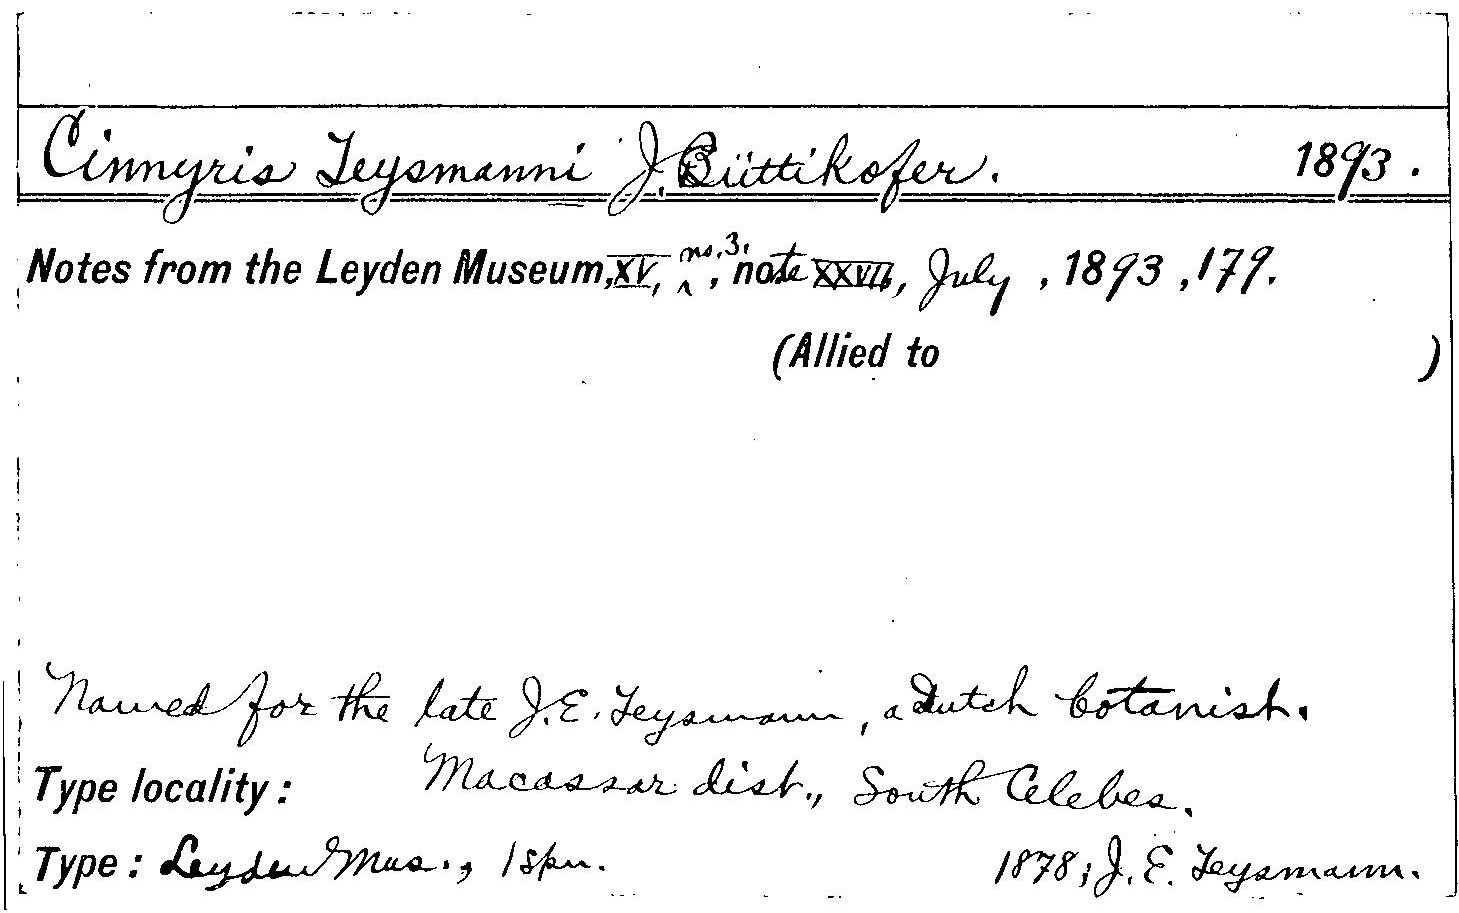 Cinnyris Teysmanni J. Büttikofer. 1893.
Notes from the Leyden Museum, XV, no. 3, note XXVII, July, 1893, 179.
(Allied to )
Named for the late J. E. Teysmann, a Dutch botanist.
Type locality: Macassar dist., South Celebes.
Type: Leyden Mus., 1 spm. 1878; J. E. Teysmann.